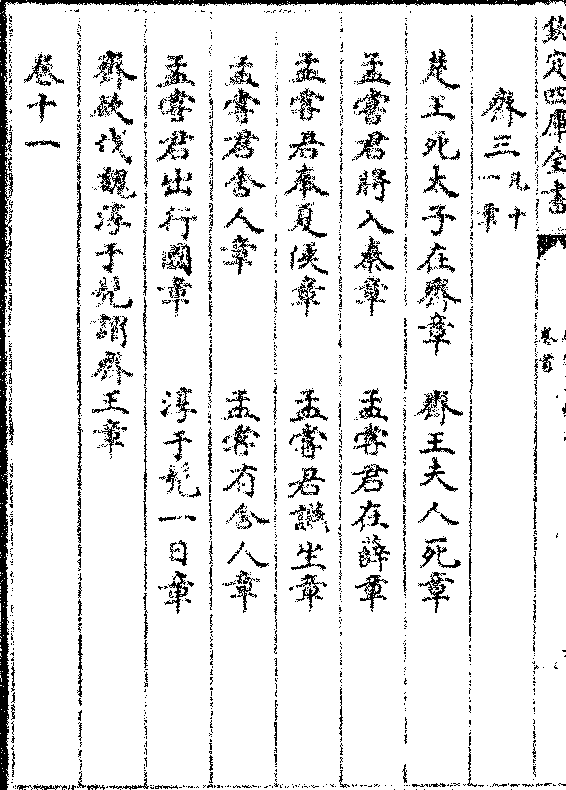 欽定四庫全書
卷首
齊三凡十一章
楚王死太子在齊章 齊王夫人死章
孟嘗君將入秦章 孟嘗君在薛章
孟嘗君奉夏侯章 孟嘗君讌坐章
孟嘗君舍人章 孟嘗有舍人章
孟嘗君出行國章 淳于髡一日章
齊欲伐魏淳于髡謂齊王章
卷十一